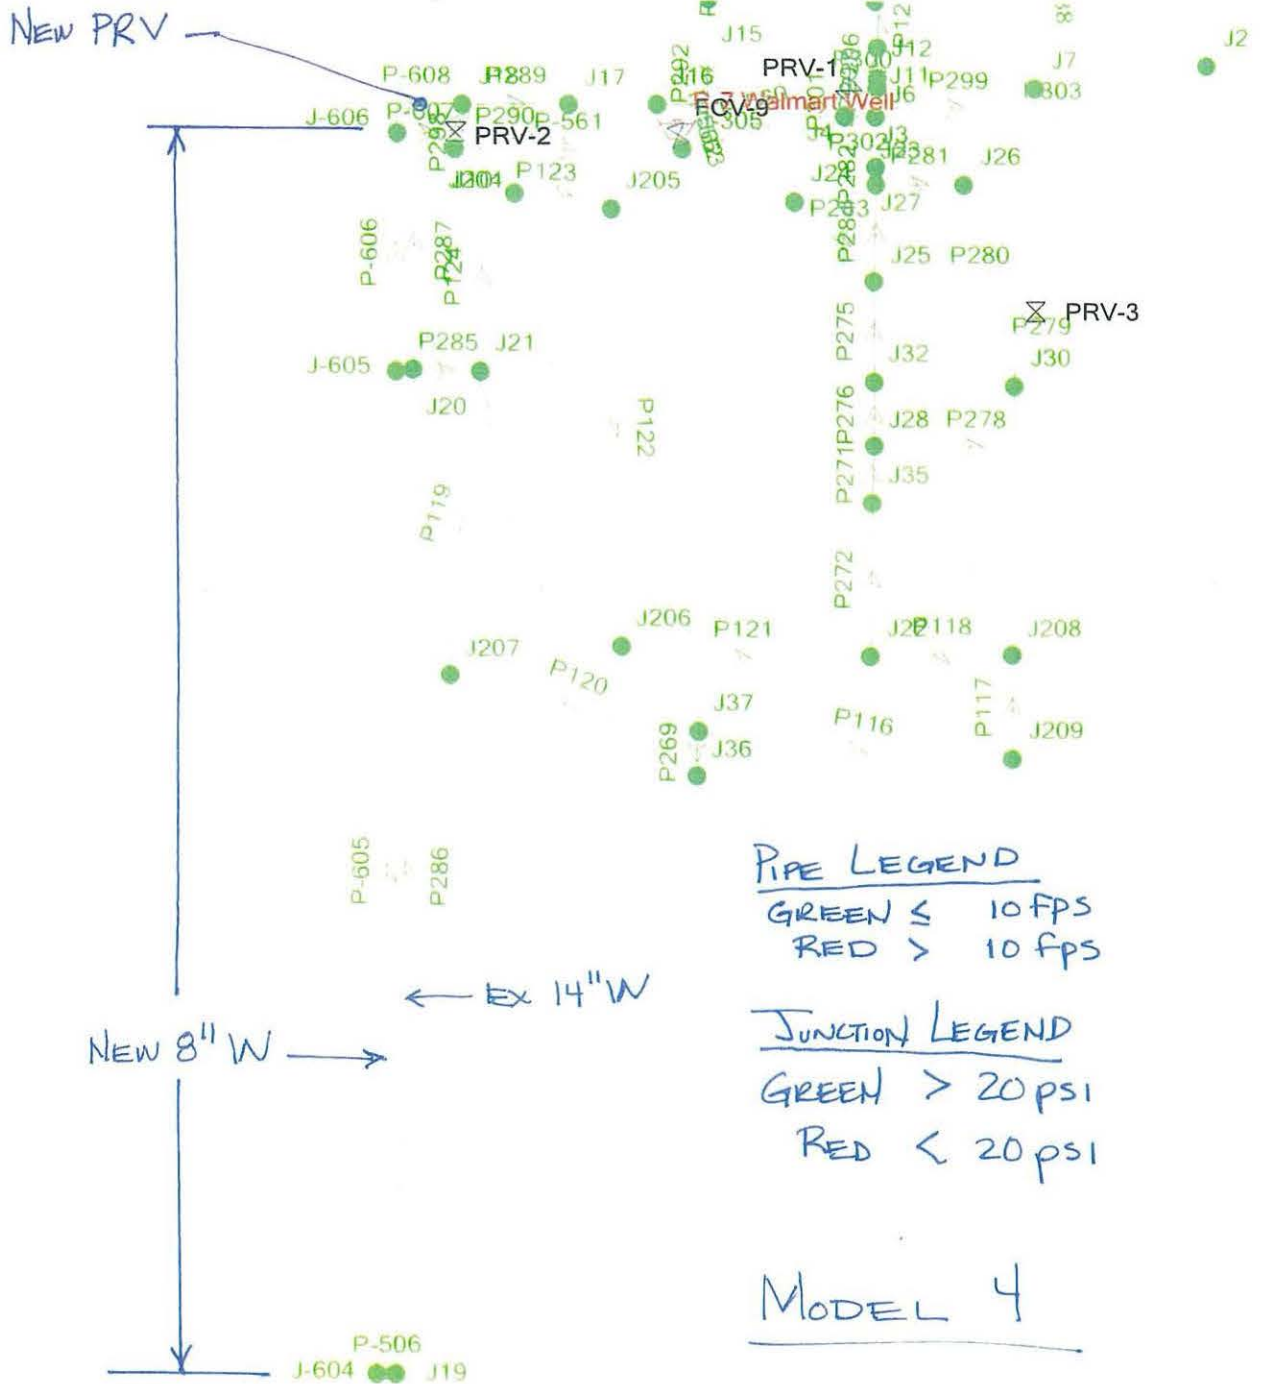 NEW PRV
J15
P292
P12
J12
J2
P-608
P289
J17
J16
PRV-1
J11
P299
J7
J6
P303
J-606
P290
P-561
PRV-2
FCV-9
7 Walmart Well
P-305
P302
J3
P281
J26
P123
J204
J205
P282
P283
J27
P284
P-606
P287
P124
J25
P280
P275
PRV-3
P279
J30
J32
J-605
P285
J21
J20
P122
P276
J28
P278
P271
J35
P119
P272
J206
P121
P118
J208
J207
P120
J37
P116
P117
J209
P269
J36
P-605
P286
PIPE LEGEND
GREEN ≤ 10 fps
RED > 10 fps
← EX 14" W
NEW 8" W
JUNCTION LEGEND
GREEN > 20 psi
RED < 20 psi
MODEL 4
P-506
J-604
J19